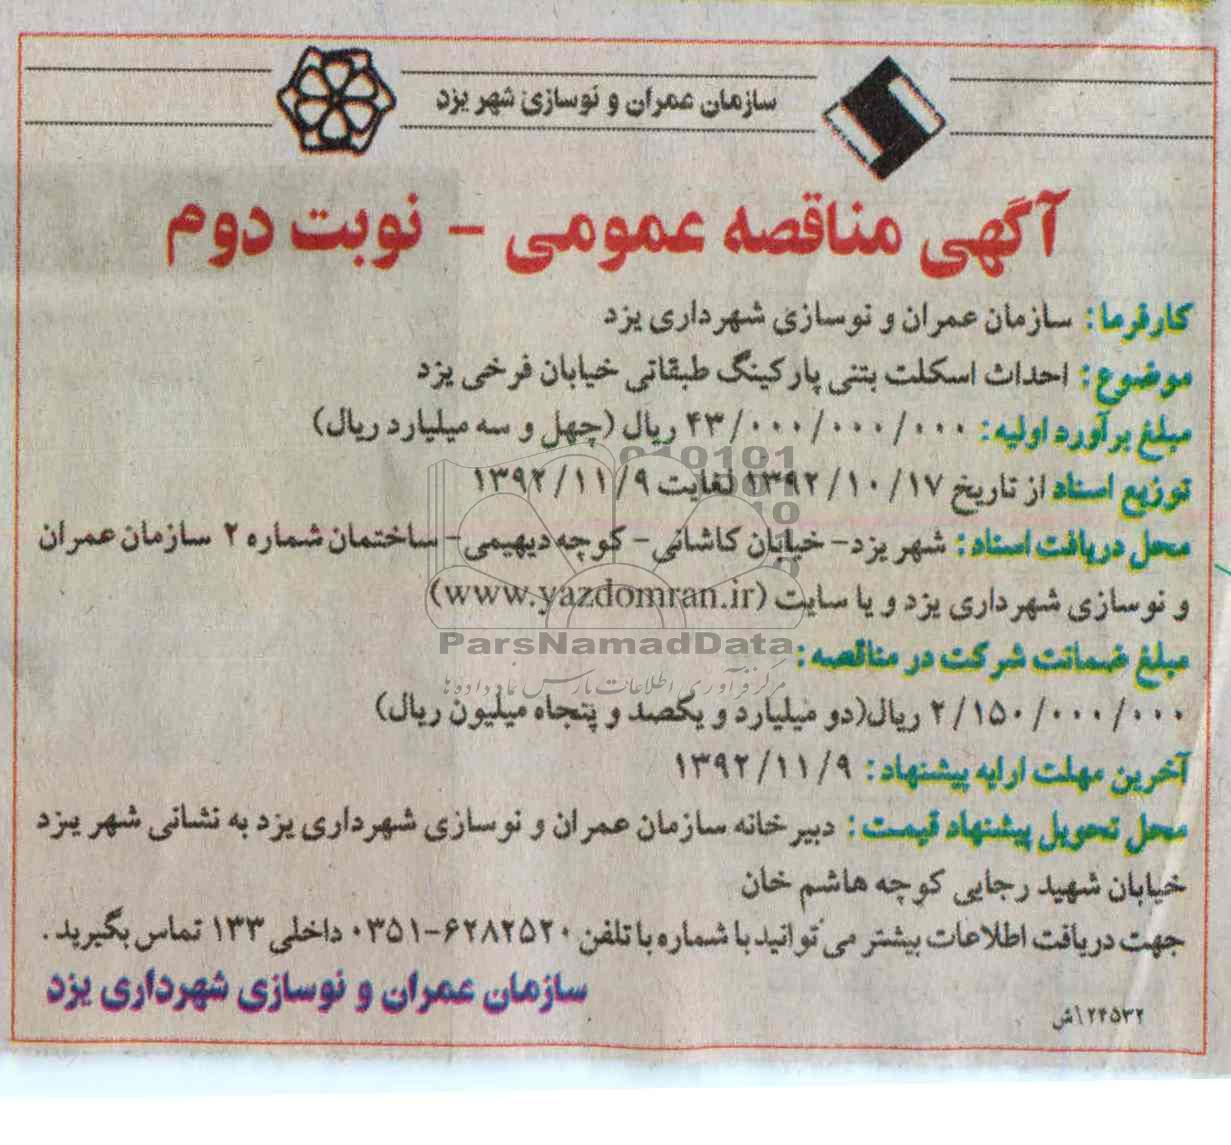 سازمان عمران و نوسازی شهر یزد
آگهی مناقصه عمومی - نوبت دوم
کارفرما: سازمان عمران و نوسازی شهرداری یزد
موضوع: احداث اسکلت بتنی پارکینگ طبقاتی خیابان فرخی یزد
مبلغ برآورد اولیه: ۴۳/۰۰۰/۰۰۰/۰۰۰ ریال (چهل و سه میلیارد ریال)
توزیع اسناد از تاریخ ۱۳۹۲/۱۰/۱۷ لغایت ۱۳۹۲/۱۱/۹
محل دریافت اسناد: شهر یزد- خیابان کاشانی- کوچه دیهیمی- ساختمان شماره ۲ سازمان عمران
و نوسازی شهرداری یزد و یا سایت (www.yazdomran.ir)
ParsNamadData
مبلغ ضمانت شرکت در مناقصه:
مرکز فرآوری اطلاعات پارس نماد داده ها
۲/۱۵۰/۰۰۰/۰۰۰ ریال(دو میلیارد و یکصد و پنجاه میلیون ریال)
آخرین مهلت ارایه پیشنهاد: ۱۳۹۲/۱۱/۹
محل تحویل پیشنهاد قیمت: دبیرخانه سازمان عمران و نوسازی شهرداری یزد به نشانی شهر یزد
خیابان شهید رجایی کوچه هاشم خان
جهت دریافت اطلاعات بیشتر می توانید با شماره با تلفن ۶۲۸۲۵۲۰-۰۳۵۱ داخلی ۱۳۳ تماس بگیرید.
سازمان عمران و نوسازی شهرداری یزد